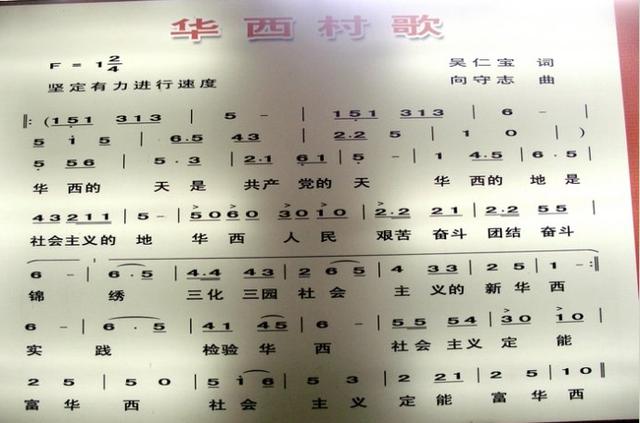 华西村歌
F = 1 2/4
吴仁宝 词
坚定有力进行速度
向守志 曲
‖: (151 313 | 5 - | 151 313 | 6 - |
5 i 5 | 6·5 43 | 2·2 5 | 1 0 | )
5 56 | 5·3 | 2·1 61 | 5 - | 1 4·5 | 6·5 |
华 西的 天 是 共产 党的 天 华 西的 地 是
43211 | 5 - | 5060 3010 | 2·2 21 | 2·2 55 |
社会主义的 地 华 西 人 民 艰苦 奋斗 团结 奋斗
6 - | 6·5 | 4·4 43 | 2 65 | 4 33 | 2 5 | 1 - :‖
锦 绣 三化 三园 社 会 主 义的 新 华 西
6 - | 6·5 | 41 45 | 6 - | 55 54 | 30 10 |
实 践 检验 华 西 社会 主义 定 能
2 5 | 5 0 | 5 i6 | 5 3 | 2 21 | 2 5 | 10 ‖
富 华 西 社 会 主 义 定 能 富 华 西